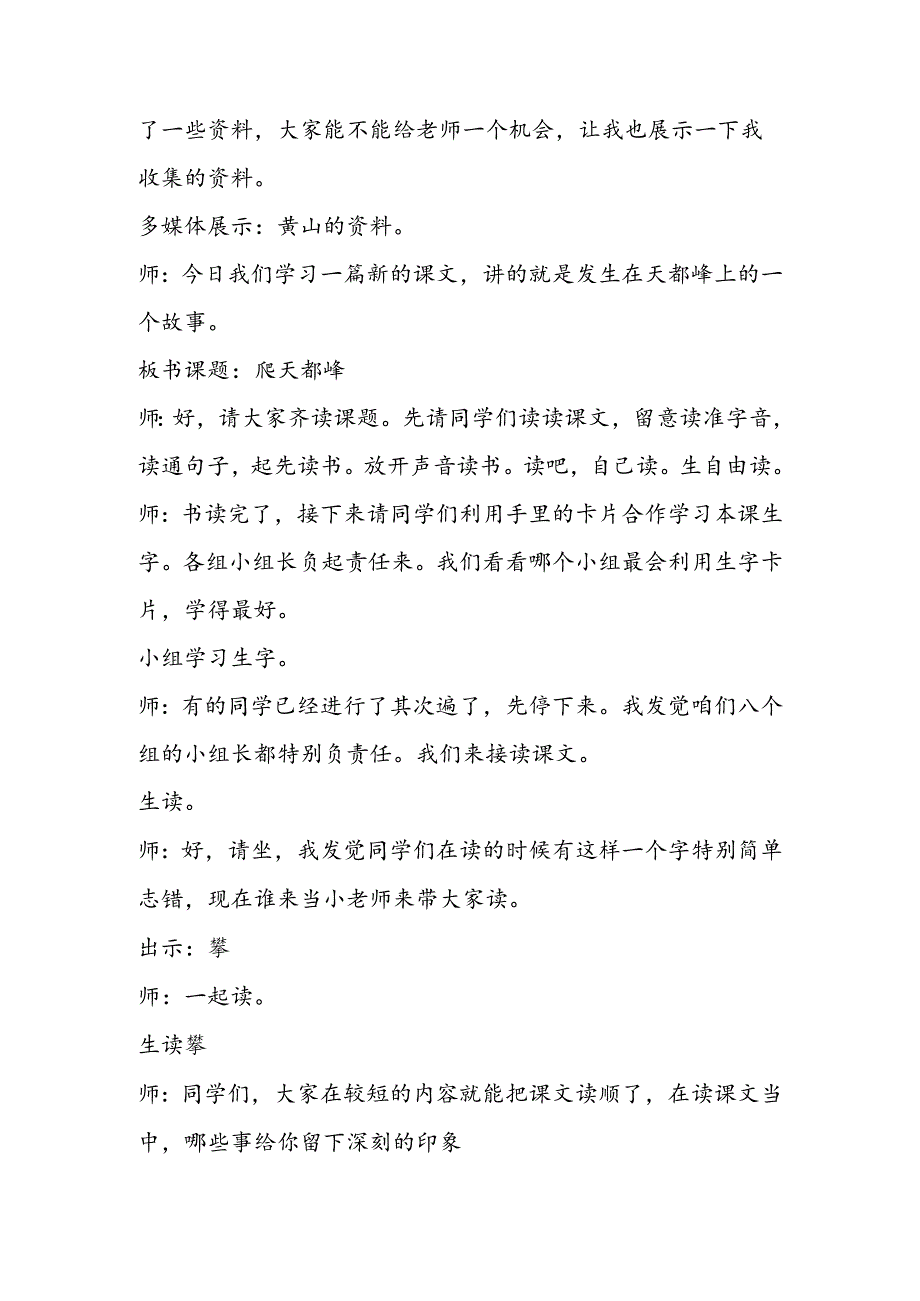 了一些资料，大家能不能给老师一个机会，让我也展示一下我
收集的资料。
多媒体展示：黄山的资料。
师：今日我们学习一篇新的课文，讲的就是发生在天都峰上的一
个故事。
板书课题：爬天都峰
师：好，请大家齐读课题。先请同学们读读课文，留意读准字音，
读通句子，起先读书。放开声音读书。读吧，自己读。生自由读。
师：书读完了，接下来请同学们利用手里的卡片合作学习本课生
字。各组小组长负起责任来。我们看看哪个小组最会利用生字卡
片，学得最好。
小组学习生字。
师：有的同学已经进行了其次遍了，先停下来。我发觉咱们八个
组的小组长都特别负责任。我们来接读课文。
生读。
师：好，请坐，我发觉同学们在读的时候有这样一个字特别简单
志错，现在谁来当小老师来带大家读。
出示：攀
师：一起读。
生读攀
师：同学们，大家在较短的内容就能把课文读顺了，在读课文当
中，哪些事给你留下深刻的印象